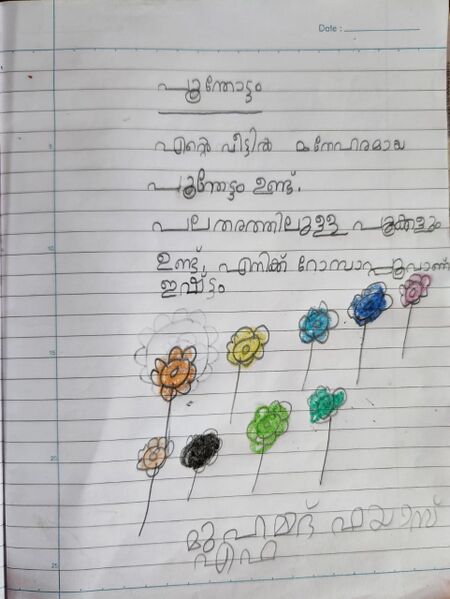 Date :
പൂന്തോട്ടം
എന്റെ വീട്ടിൽ മനോഹരമായ
പൂന്തോട്ടം ഉണ്ട്.
പലതരത്തിലുള്ള പൂക്കളും
ഉണ്ട്. എനിക്ക് റോസാപ്പൂവാണ്
ഇഷ്ട്ടം
മുഹമ്മദ് ഫയാസ്
എഫ